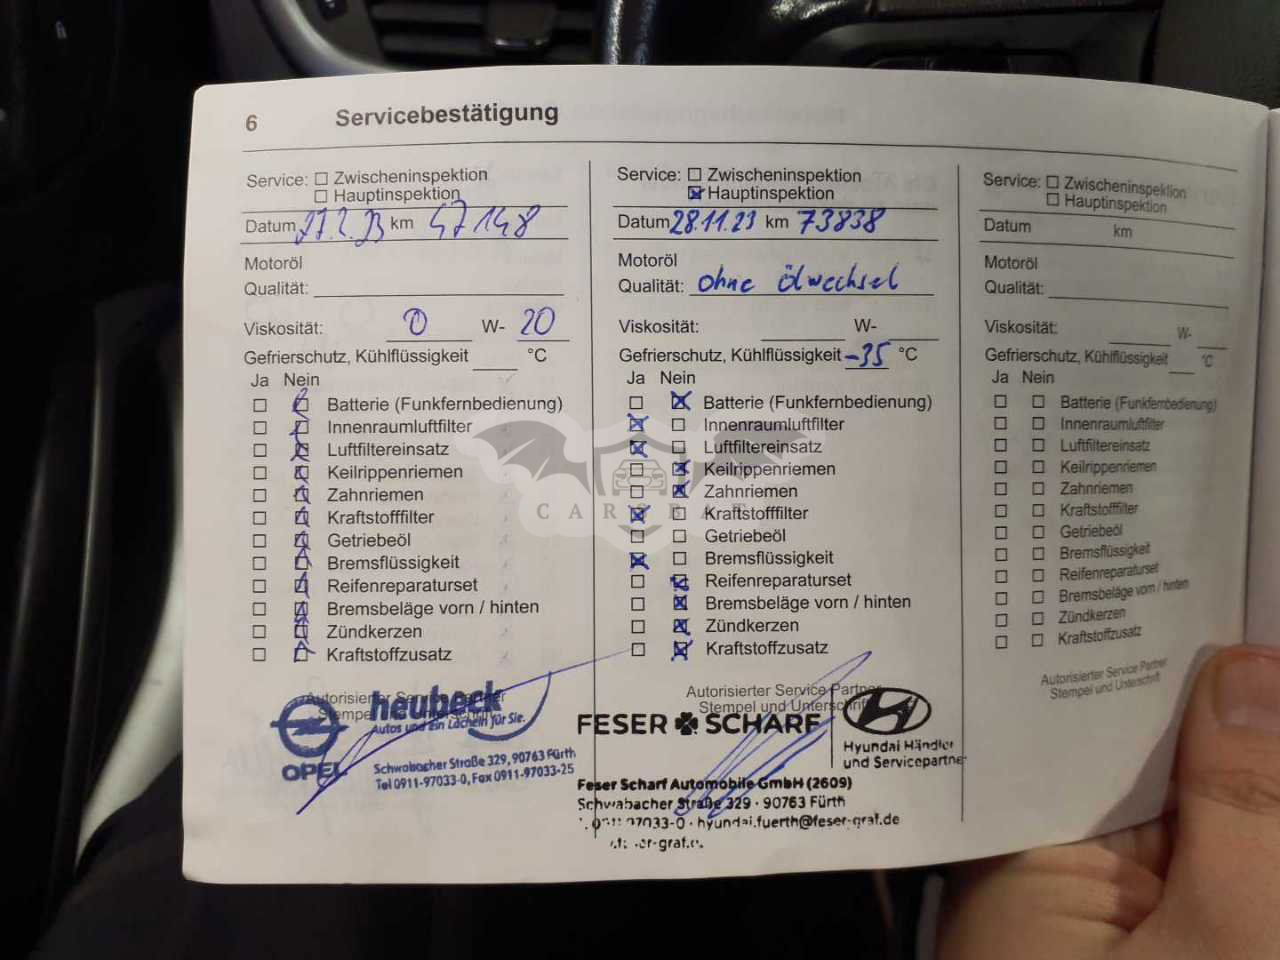 6 Servicebestätigung
Service: Zwischeninspektion
Hauptinspektion
Datum 27.2.23 km 47148
Motoröl
Qualität:
Viskosität: 0 W- 20
Gefrierschutz, Kühlflüssigkeit °C
Ja Nein
Batterie (Funkfernbedienung)
Innenraumluftfilter
Luftfiltereinsatz
Keilrippenriemen
Zahnriemen
Kraftstofffilter
Getriebeöl
Bremsflüssigkeit
Reifenreparaturset
Bremsbeläge vorn / hinten
Zündkerzen
Kraftstoffzusatz
Autorisierter Service Partner
Stempel und Unterschrift
OPEL
heubeck
Autos und ein Lächeln für Sie.
Schwabacher Straße 329, 90763 Fürth
Tel 0911-97033-0, Fax 0911-97033-25
Service: Zwischeninspektion
Hauptinspektion
Datum 28.11.23 km 73838
Motoröl
Qualität: ohne Ölwechsel
Viskosität: W-
Gefrierschutz, Kühlflüssigkeit -35 °C
Ja Nein
Batterie (Funkfernbedienung)
Innenraumluftfilter
Luftfiltereinsatz
Keilrippenriemen
Zahnriemen
Kraftstofffilter
Getriebeöl
Bremsflüssigkeit
Reifenreparaturset
Bremsbeläge vorn / hinten
Zündkerzen
Kraftstoffzusatz
Autorisierter Service Partner
Stempel und Unterschrift
FESER SCHARF
Hyundai Händler
und Servicepartner
Feser Scharf Automobile GmbH (2609)
Schwabacher Straße 329 · 90763 Fürth
97033-0 · hyundai.fuerth@feser-graf.de
Service: Zwischeninspektion
Hauptinspektion
Datum km
Motoröl
Qualität:
Viskosität: W-
Gefrierschutz, Kühlflüssigkeit °C
Ja Nein
Batterie (Funkfernbedienung)
Innenraumluftfilter
Luftfiltereinsatz
Keilrippenriemen
Zahnriemen
Kraftstofffilter
Getriebeöl
Bremsflüssigkeit
Reifenreparaturset
Bremsbeläge vorn / hinten
Zündkerzen
Kraftstoffzusatz
Autorisierter Service Partner
Stempel und Unterschrift